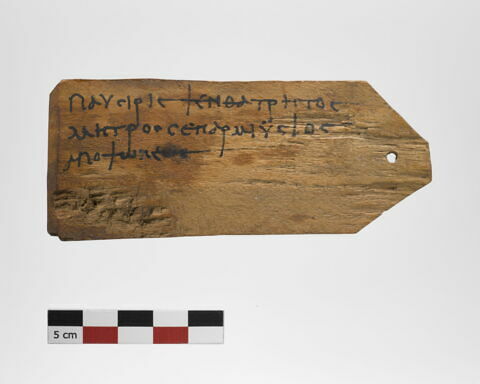 παυσιρις ψενθατρητος
μητρος σεναρμιϋσιος
απο
5 cm